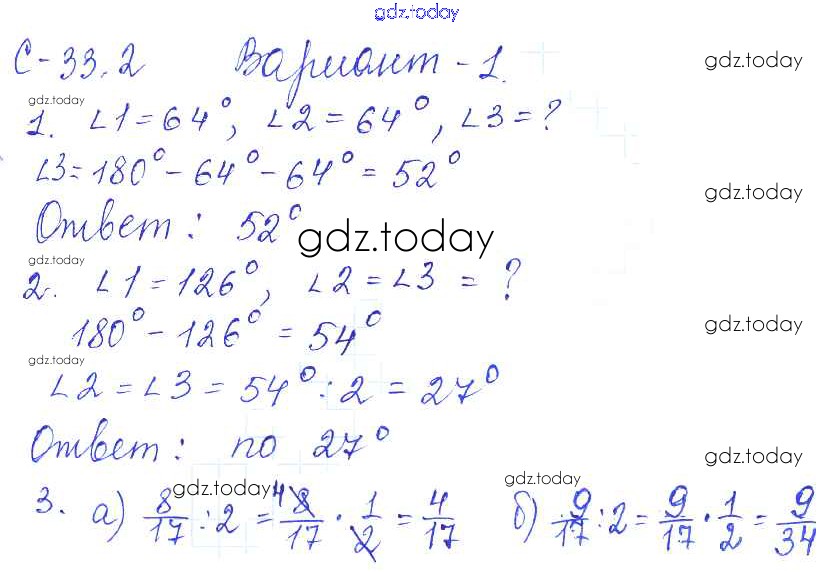 gdz.today
С-33.2 Вариант-1. gdz.today
gdz.today
1. ∠1=64°, ∠2=64°, ∠3=?
∠3=180°-64°-64°=52°
gdz.today
Ответ: 52°
gdz.today
gdz.today
2. ∠1=126°, ∠2=∠3=?
180°-126°=54°
gdz.today
gdz.today
∠2=∠3=54°:2=27°
Ответ: по 27°
gdz.today
gdz.today gdz.today
3. а) 8/17 :2 = 4 8/17 · 1/2 = 4/17 б) 9/17 :2 = 9/17 · 1/2 = 9/34